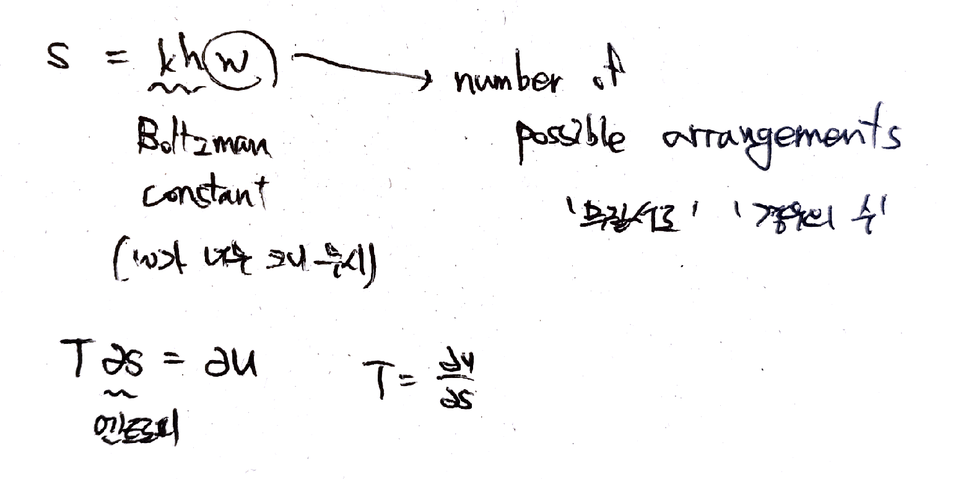 S = k ln w → number of
possible arrangements
Boltzman
constant
'무질서도' '경우의 수'
(w가 너무 크니 무시)
T ∂s = ∂u T = ∂u/∂s
엔트로피